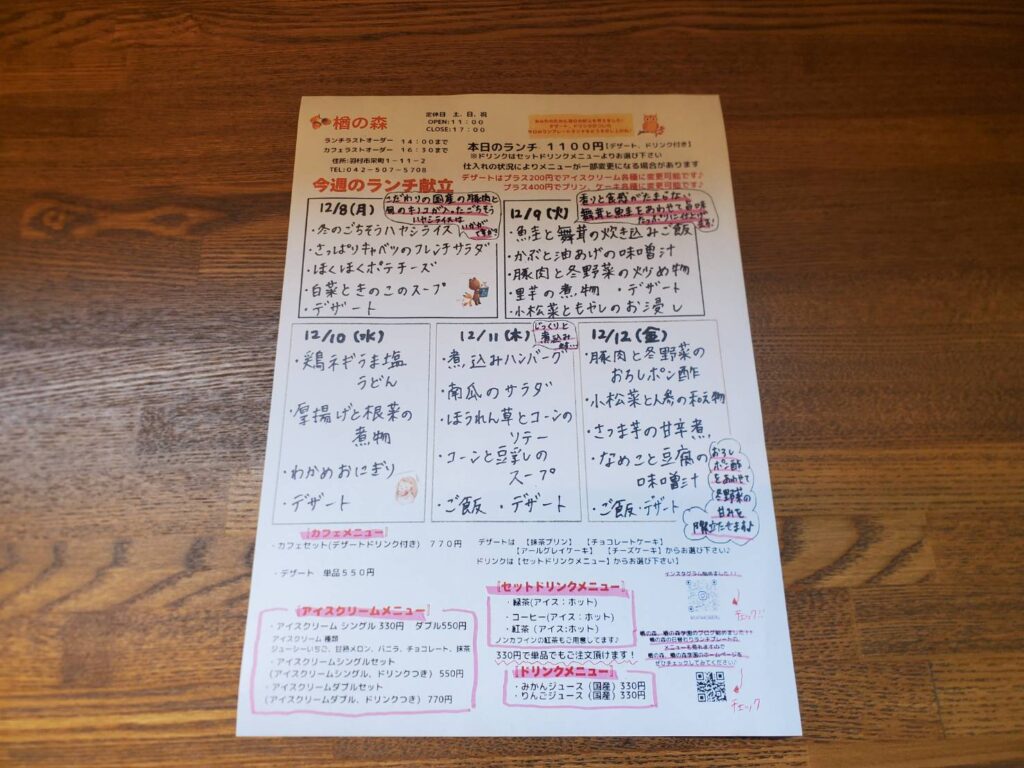 楢の森
定休日 土、日、祝
OPEN:11:00
CLOSE:17:00
ランチラストオーダー 14:00まで
カフェラストオーダー 16:30まで
住所:羽村市栄町1-11-2
TEL:042-507-5708
本日のランチ 1100円【デザート、ドリンク付き】
※ドリンクはセットドリンクメニューよりお選び下さい
仕入れの状況によりメニューが一部変更になる場合があります
デザートはプラス200円でアイスクリーム各種に変更可能です♪
プラス400円でプリン、ケーキ各種に変更可能です♪
今週のランチ献立
12/8(月)
こだわりの国産の豚肉と
ハヤシライスは
いかがですか?
・冬のごちそうハヤシライス
・さっぱりキャベツのフレンチサラダ
・ほくほくポテチーズ
・白菜ときのこのスープ
・デザート
12/9(火)
香りと食感がたまらない
舞茸と魚圭をあわせて旨味
たっぷりに仕上げ
ます!
・魚圭と舞茸の炊き込みご飯
・かぶと油あげの味噌汁
・豚肉と冬野菜の炒め物
・里芋の煮物 ・デザート
・小松菜ともやしのお浸し
12/10(水)
・鶏ネギうま塩
うどん
・厚揚げと根菜の
煮物
・わかめおにぎり
・デザート
12/11(木)
じっくりと
煮込み
ます…
・煮込みハンバーグ
・南瓜のサラダ
・ほうれん草とコーンの
ソテー
・コーンと豆乳の
スープ
・ご飯 ・デザート
12/12(金)
・豚肉と冬野菜の
おろしポン酢
・小松菜と人参の和え物
・さつま芋の甘辛煮
・なめこと豆腐の
味噌汁
・ご飯・デザート
おろし
ポン酢
をあわせて
冬野菜の
甘みを
際立たせますよ
【カフェメニュー】
・カフェセット(デザートドリンク付き) 770円
・デザート 単品550円
デザートは 【抹茶プリン】 【チョコレートケーキ】
【アールグレイケーキ】 【チーズケーキ】からお選び下さい♪
ドリンクは【セットドリンクメニュー】からお選び下さい】
【アイスクリームメニュー】
・アイスクリーム シングル 330円 ダブル550円
アイスクリーム 種類
ジューシーいちご、甘熟メロン、バニラ、チョコレート、抹茶
・アイスクリームシングルセット
(アイスクリームシングル、ドリンクつき) 550円
・アイスクリームダブルセット
(アイスクリームダブル、ドリンクつき) 770円
【セットドリンクメニュー】
・緑茶(アイス:ホット)
・コーヒー(アイス:ホット)
・紅茶 (アイス:ホット)
ノンカフェインの紅茶もご用意してます♪
330円で単品でもご注文頂けます!
【ドリンクメニュー】
・みかんジュース (国産) 330円
・りんごジュース (国産) 330円
インスタグラム始めました♪♪
チェック!!
楢の森、楢の森学園のブログ始めました!!
楢の森の日替わりランチプレートの、
メニューも見れますので
楢の森、楢の森学園のホームページを
ぜひチェックしてみてください♪
チェック